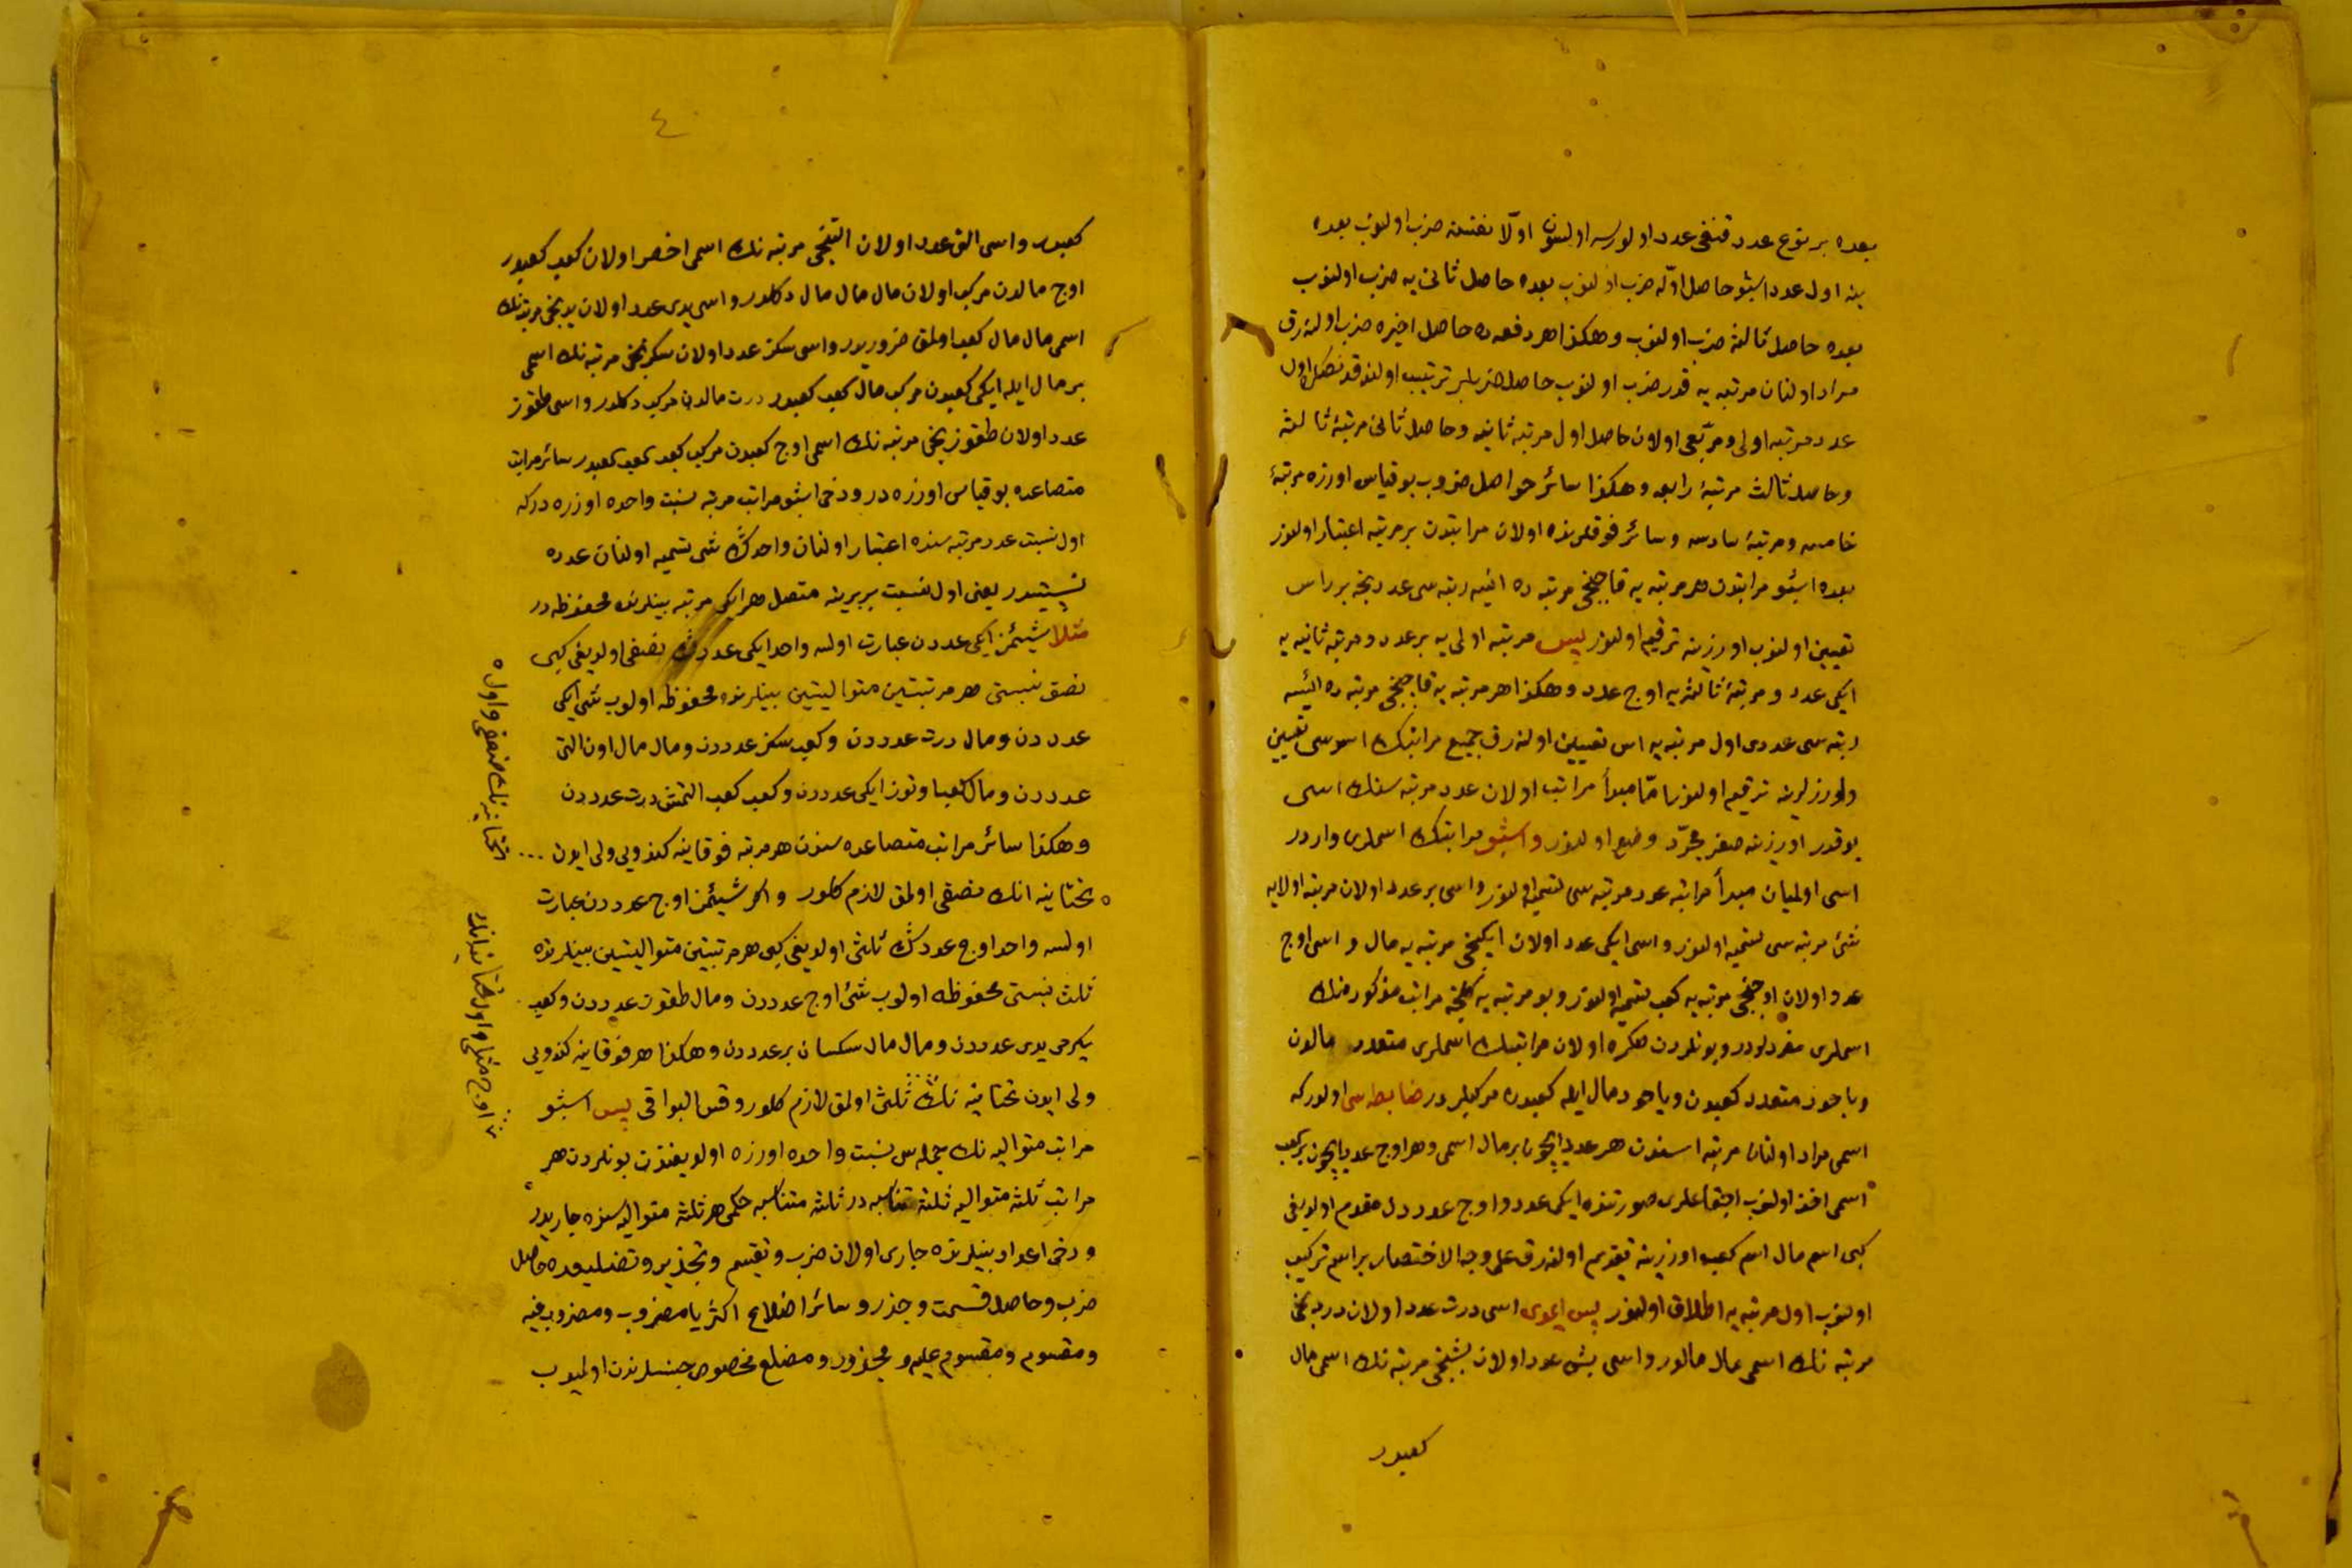 بعده بر نوع عدد قنغى عدد اولورسه اولسون اولا نفسنه ضرب اولنوب بعده
ينه اول عدد اشبو حاصل اوله ضرب اولنوب بعده حاصل ثانى يه ضرب اولنوب
بعده حاصل ثالثه ضرب اولنوب وهكذا هر دفعه ده حاصل اخيره ضرب اولنه رق
مراد اولنان مرتبه يه قدر ضرب اولنوب حاصل ضربلر ترتيب اولندقدنصكره اول
عدد مرتبه اولى ومربعى اولان حاصل اول مرتبه ثانيه وحاصل ثانى مرتبۀ ثالثه
وحاصل ثالث مرتبۀ رابعه وهكذا سائر حواصل ضروب بو قياس اوزره مرتبۀ
خامسه ومرتبۀ سادسه وسائر فوقلرنده اولان مراتبدن بر مرتبه اعتبار اولنور
بعده اشبو مراتبدن هر مرتبه يه قاچنجى مرتبه ده ايسه رتبه سى عددنجه بر راس
تعيين اولنوب اوزرينه ترقيم اولنور پس مرتبه اولى يه بر عدد ومرتبه ثانيه يه
ايكى عدد ومرتبۀ ثالثه يه اوچ عدد وهكذا هر مرتبه يه قاچنجى مرتبه ده ايسه
رتبه سى عددى اول مرتبه يه اس تعيين اولنه رق جميع مراتبك اسوسى تعيين
واوزرلرينه ترقيم اولنور اما مبدأ مراتب اولان عدد مرتبه سنك اسى
يوقدر اوزرينه صفر مجرد وضع اولنور واشبو مراتبك اسملرى واردر
اسى اولميان مبدأ مراتبه عدد مرتبه سى تسميه اولنور واسى بر عدد اولان مرتبه اولايه
شئ مرتبه سى تسميه اولنور واسى ايكى عدد اولان ايكنجى مرتبه يه مال و اسى اوچ
عدد اولان اوچنجى مرتبه يه كعب تسميه اولنور وبو مرتبه يه كلنجه مراتب مذكوره نك
اسملرى مفردلردر وبونلردن صكره اولان مراتبك اسملرى متعدد مالدن
وياخود متعدد كعبدن وياخود مال ايله كعبدن مركبلردر ضابطه سى اولدركه
اسمى مراد اولنان مرتبه اسندن هر عدد ايچون بر مال اسمى وهر اوچ عدد ايچون بر كعب
اسمى اخذ اولنوب اجتماعلرى صورتنده ايكى عدد اوچ عدددن مقدم اولديغى
كبى اسم مال اسم كعب اوزرينه تقديم اولنه رق على وجه الاختصار بر اسم تركيب
اولنوب اول مرتبه يه اطلاق اولنور پس ايمدى اسى درت عدد اولان دردنجى
مرتبه نك اسمى مال مالدر واسى بش عدد اولان بشنجى مرتبه نك اسمى مال
كعبدر
٤
كعبدر واسى التى عدد اولان التنجى مرتبه نك اسمى اخصر اولان كعب كعبدر
اوچ مالدن مركب اولان مال مال مال دكلدر واسى يدى عدد اولان يدنجى مرتبه نك
اسمى مال مال كعب اولمق ضروريدر واسى سكز عدد اولان سكزنجى مرتبه نك اسمى
بر مال ايله ايكى كعبدن مركب مال كعب كعبدر درت مالدن مركب دكلدر واسى طقوز
عدد اولان طقوزنجى مرتبه نك اسمى اوچ كعبدن مركب كعب كعب كعبدر سائر مراتب
متصاعده بو قياس اوزره در ودخى اشبو مراتب مرتبه نسبت واحده اوزره دركه
اول نسبت عدد مرتبه سنده اعتبار اولنان واحدك شى تسميه اولنان عدده
نسبتيدر يعنى اول نسبت بربرينه متصل هر ايكى مرتبه بينلرنده محفوظه در
مثلا شيئمز ايكى عدددن عبارت اولسه واحد ايكى عددك نصفى اولديغى كبى
نصف نسبتى هر مرتبتين متواليتين بينلرنده محفوظه اولوب شى ايكى
عدددن ومال درت عدددن وكعب سكز عدددن ومال مال اون التى
عدددن ومال كعب اوتوز ايكى عدددن وكعب كعب التمش درت عدددن
وهكذا سائر مراتب متصاعده سندن هر مرتبه فوقانيه كندويى ولى ايدن
تحتانيه انك نصفى اولمق لازم كلور واكر شيئمز اوچ عدددن عبارت
اولسه واحد اوچ عددك ثلثى اولديغى كبى هر مرتبتين متواليتين بينلرنده
ثلث نسبتى محفوظه اولوب شئ اوچ عدددن ومال طقوز عدددن وكعب
يكرمى يدى عدددن ومال مال سكسان بر عدددن وهكذا هر فوقانيه كندويى
ولى ايدن تحتانيه نك ثلثى اولمق لازم كلور وقس البواقى پس اشبو
مراتب متواليه نك جمله سى نسبت واحده اوزره اولديغندن بونلردن هر
مراتب ثلثه متواليه ثلثه متناسبه در ثلثه متناسبه حكمى هر ثلثه متواليه سنده جاريدر
ودخى اعداد بينلرنده جارى اولان ضرب وتقسيم وتجذير وتضليعده حاصل
ضرب وحاصل قسمت وجذر وسائر اضلاع اكثريا مضروب ومضروب فيه
ومقسوم ومقسوم عليه ومجذور ومضلع مخصوص جنسلرندن اولميوب
تحتانيه نك ضعفى واول
اوچ مثلى واول تحتانيه انك